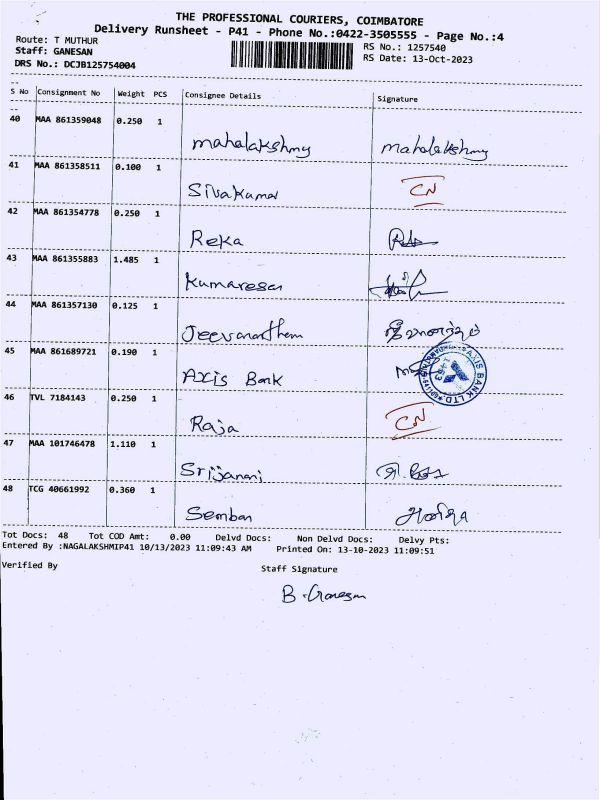 THE PROFESSIONAL COURIERS, COIMBATORE
Delivery Runsheet - P41 - Phone No.:0422-3505555 - Page No.:4
Route: T MUTHUR
RS No.: 1257540
Staff: GANESAN
RS Date: 13-Oct-2023
DRS No.: DCJB125754004
S No Consignment No Weight PCS Consignee Details Signature
40 MAA 861359048 0.250 1
mahalakshmy mahalakshmy
41 MAA 861358511 0.100 1
Sivakumar CN
42 MAA 861354778 0.250 1
Reka
43 MAA 861355883 1.485 1
Kumaresan
44 MAA 861357130 0.125 1
Jeevanantham
45 MAA 861689721 0.190 1
Axis Bank
AXIS BANK LTD.
46 TVL 7184143 0.250 1
Raja CN
47 MAA 101746478 1.110 1
Srijanani
48 TCG 40661992 0.360 1
Semban
Tot Docs: 48 Tot COD Amt: 0.00 Delvd Docs: Non Delvd Docs: Delvy Pts:
Entered By :NAGALAKSHMIP41 10/13/2023 11:09:43 AM Printed On: 13-10-2023 11:09:51
Verified By Staff Signature
B. Ganesan